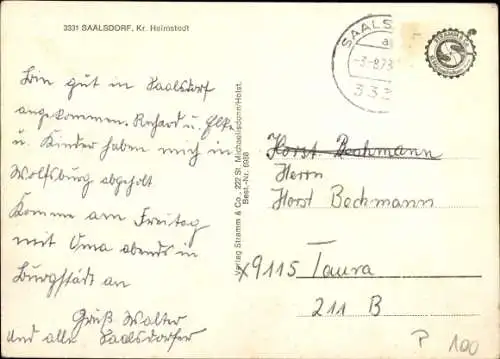 3331 SAALSDORF, Kr. Helmstedt
Bin gut in Saalsdorf
angekommen. Richard u. Elke
u. Kinder haben mich in
Wolfsburg abgeholt
Komme am Freitag
mit Oma abends in
Burgstädt an
Gruß Walter
und alle Saalsdorfer
Verlag Stramm & Co., 222 St. Michaelisdonn/Holst.
Best.-Nr. 6988
SAALS
a
-3-8.73
332
STRAMM & CO.
Horst Bechmann
Herrn
Horst Bechmann
x9115 Taura
211 B
P 100